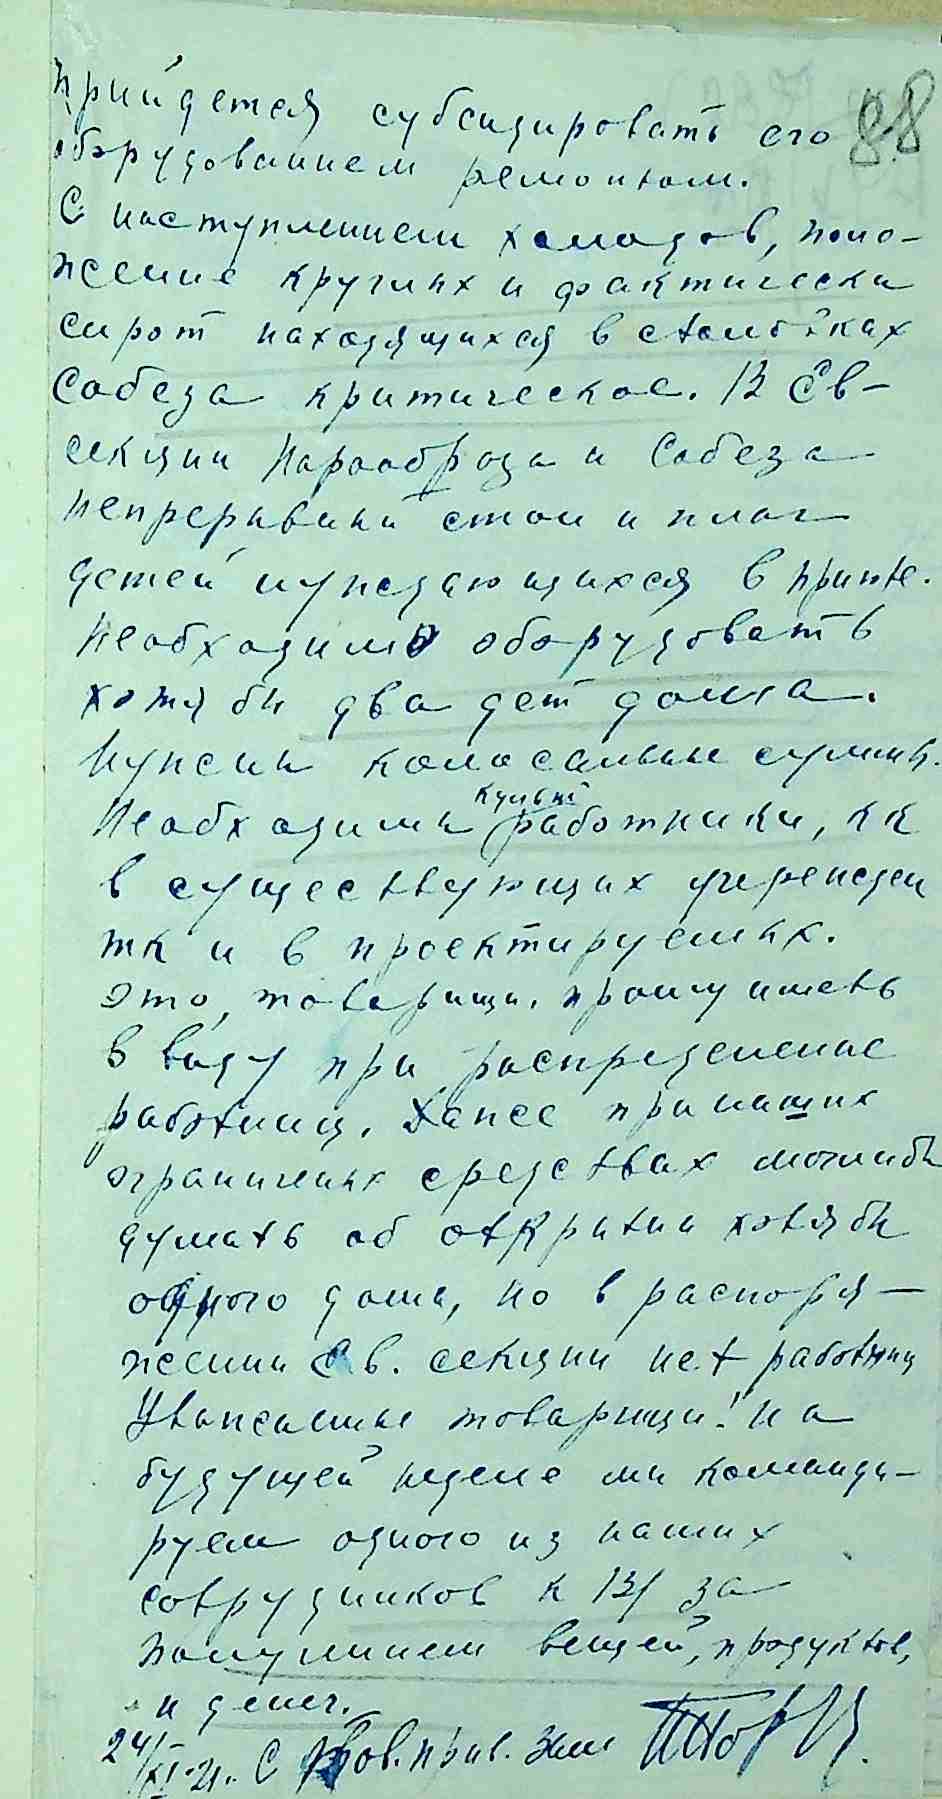 прийдется субсидировать его 88
оборудованием ремонтом.
С наступлением холодов, поло-
жение круглых и фактически
сирот находящихся в столовках
Собеза критическое. В Ев-
секции Наробраза и Собеза
непрерывный стон и плач
детей нуждающихся в приюте.
Необходимо оборудовать
хотя бы два дет дома.
Нужны колосальные суммы.
культ
Необходимы работники, кк
в существующих учрежден
тк и в проектируемых.
Это, товарищи, прошу иметь
в виду при распределение
работниц. Даже при наших
ограничених средствах могли бы
думать об открытии хотя бы
одного дома, но в распоря-
жении Ев. секции нет работниц
Уважаемые товарищи! На
будущей неделе мы команди-
руем одного из наших
сотрудников к Вам за
получением вещей, продуктов,
и денег.
24/XI-21. С тов. прив. Зам